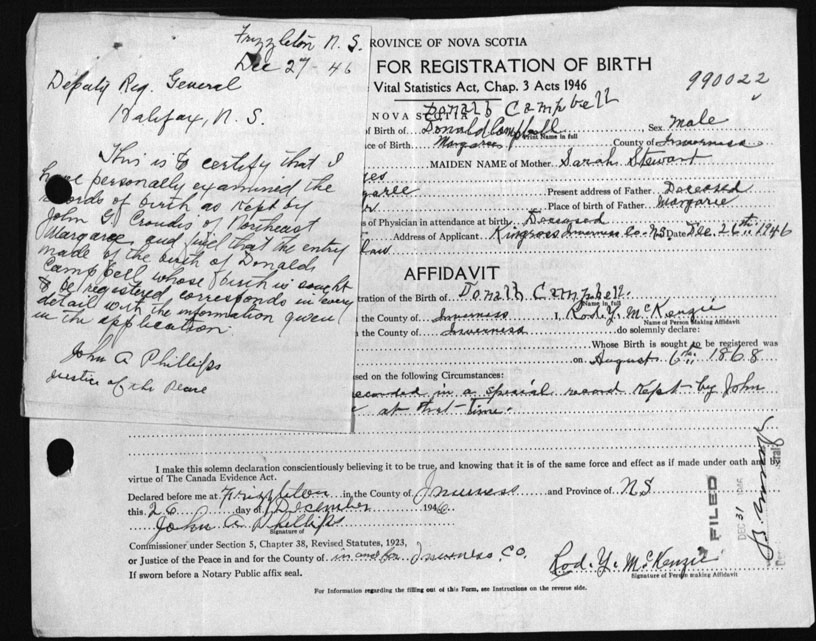 Frizzleton N.S.
Dec 27-46
Deputy Reg. General
Halifax, N.S.
This is to certify that I
have personally examined the
records of birth as kept by
John G. Croudis of Northeast
Margaree and find that the entry
made of the birth of Donald
Campbell whose birth is sought
to be registered corresponds in every
detail with the information given
in the application.
John A Phillips
Justice of the Peace
ROVINCE OF NOVA SCOTIA
FOR REGISTRATION OF BIRTH
Vital Statistics Act, Chap. 3 Acts 1946
990022
Donald Campbell
NOVA SCOTIA
of Birth of Donald Campbell Sex Male
Print Name in full
ce of Birth Margaree County of Inverness
MAIDEN NAME of Mother Sarah Stewart
Present address of Father Deceased
Place of birth of Father Margarie
s of Physician in attendance at birth Deceased
Address of Applicant Kingross Inverness Co. N.S. Date Dec. 26th 1946
AFFIDAVIT
stration of the Birth of Donald Campbell
Name in full
the County of Inverness I, Rod. Y. McKenzie
Name of Person Making Affidavit
the County of Inverness do solemnly declare:
Whose Birth is sought to be registered was
on August 6th 1868
sed on the following Circumstances:
recorded in a special record kept by John
at that time.
I make this solemn declaration conscientiously believing it to be true, and knowing that it is of the same force and effect as if made under oath and
virtue of The Canada Evidence Act.
Declared before me at Frizzleton in the County of Inverness and Province of N S
this 26 day of December 1946
John A Phillips
Signature of
Commissioner under Section 5, Chapter 38, Revised Statutes, 1923,
or Justice of the Peace in and for the County of in and for Inverness Co.
If sworn before a Notary Public affix seal.
Rod. Y. McKenzie
Signature of Person making Affidavit
For Information regarding the filling out of this Form, see Instructions on the reverse side.
FILED
DEC 31 1946